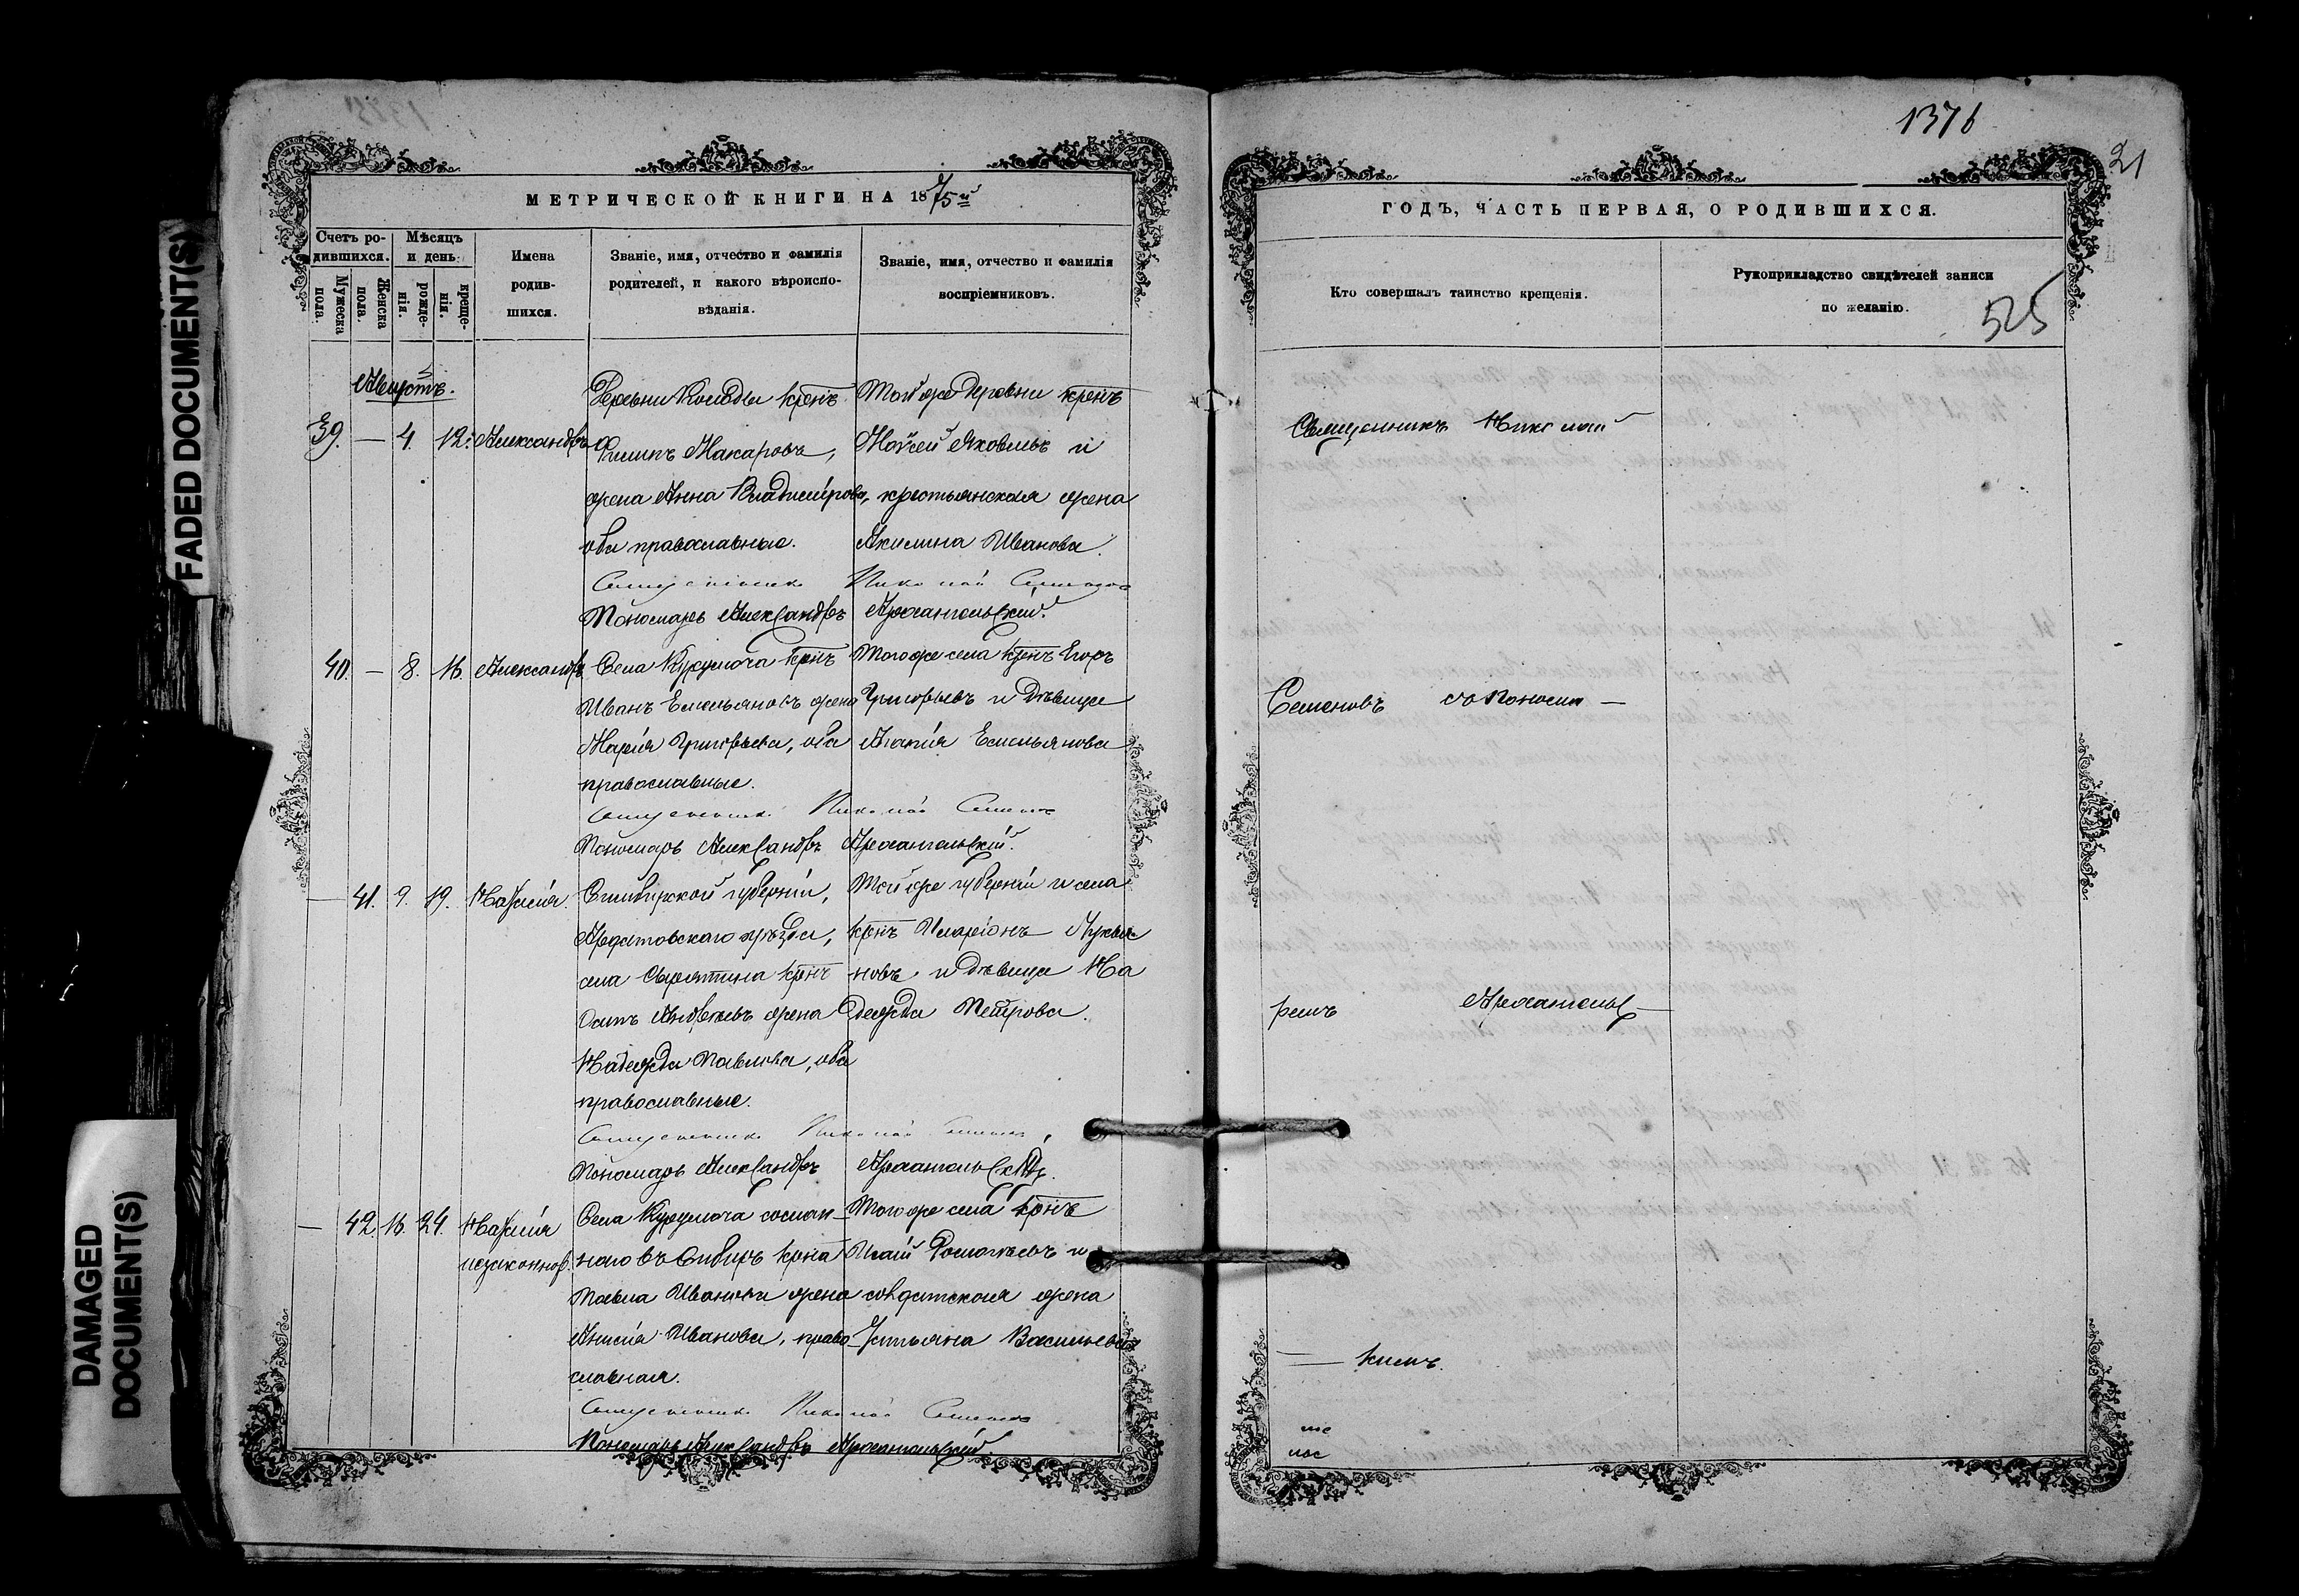 FADED DOCUMENT(S)
DAMAGED
DOCUMENT(S)
МЕТРИЧЕСКОЙ КНИГИ НА 1875й
Счетъ ро-
дившихся.
Мѣсяцъ
и день
Мужеска
пола.
Женска
пола.
рожде-
нія.
креще-
нія.
Имена
родив-
шихся.
Званіе, имя, отчество и фамилія
родителей, и какого вѣроиспо-
вѣданія.
Званіе, имя, отчество и фамилія
воспріемниковъ.
Августъ.
39. — 4. 12. Александръ
Деревни крен҃ъ
Филипъ Макаровъ,
жена Анна Владимірова,
оба православные.
Той же деревни крен҃ъ
Моѵсей Яковлевъ и
крестьянская жена
Акилина Иванова.
Священникъ Николай Семеновъ
Пономарь Александръ Архангельскій.
40. — 8. 16. Александръ
Села Курумоча крен҃ъ
Иванъ Емельяновъ жена
Марія Григорьева, оба
православные.
Того же села крен҃ъ Егоръ
Григорьевъ и дѣвица
Емельянова
Священникъ Николай Семеновъ
Пономарь Александръ Архангельскій.
— 41. 9. 19. Наталія.
Симбирской губерніи,
Ардатовскаго уѣзда,
села крен҃ъ
Осипъ Андреевъ жена
Надежда Павлова, оба
православные.
Той же губерніи и села
крен҃ъ Иларіонъ Лукья-
новъ и дѣвица На
дежда Петрова.
Священникъ Николай Семеновъ
Пономарь Александръ Архангельскій.
— 42. 16. 24. Наталія
незаконнор.
Села Курумоча сослан-
наго въ Сибирь крен҃а
Павла Иванова жена
Анисія Иванова, право-
славная.
Того же села крен҃ъ
Исай и
солдатская жена
Устьяна Васильева
Священникъ Николай Семеновъ
Пономарь Александръ Архангельскій.
1376
21
ГОДЪ, ЧАСТЬ ПЕРВАЯ, О РОДИВШИХСЯ.
Кто совершалъ таинство крещенія.
Рукоприкладство свидѣтелей записи
по желанію.
525
Священникъ Николай
Семеновъ съ пономa —
ремъ Архангельс —
— кимъ.